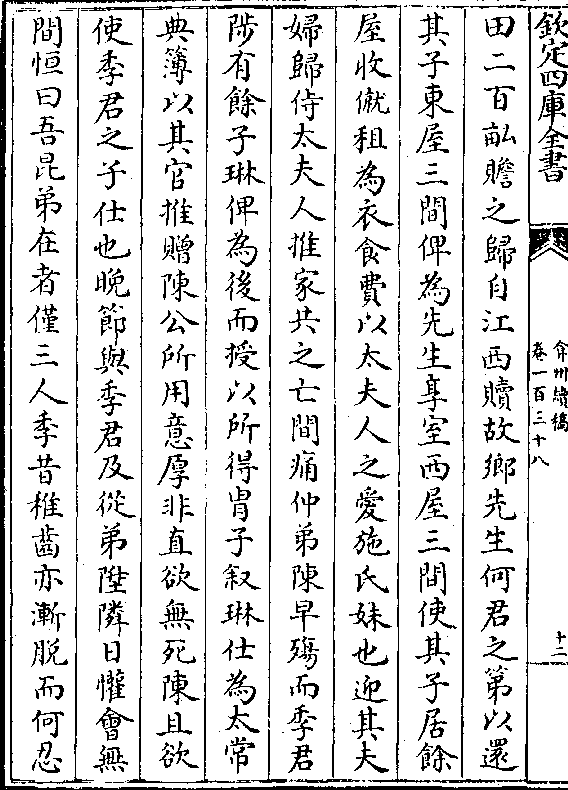 欽定四庫全書
弇州續稿
卷一百三十八
十二
田二百畝贍之歸自江西贖故鄉先生何君之第以還
其子東屋三間俾為先生享室西屋三間使其子居餘
屋收僦租為衣食費以太夫人之愛施氏妹也迎其夫
婦歸侍太夫人推家共之亡間痛仲弟陳早殤而季君
陟有餘子琳俾為後而授以所得胄子叙琳仕為太常
典簿以其官推贈陳公所用意厚非直欲無死陳且欲
使季君之子仕也晚節與季君及從弟陞隣日懽會無
間恒曰吾昆弟在者僅三人季昔稚齒亦漸脫而何忍